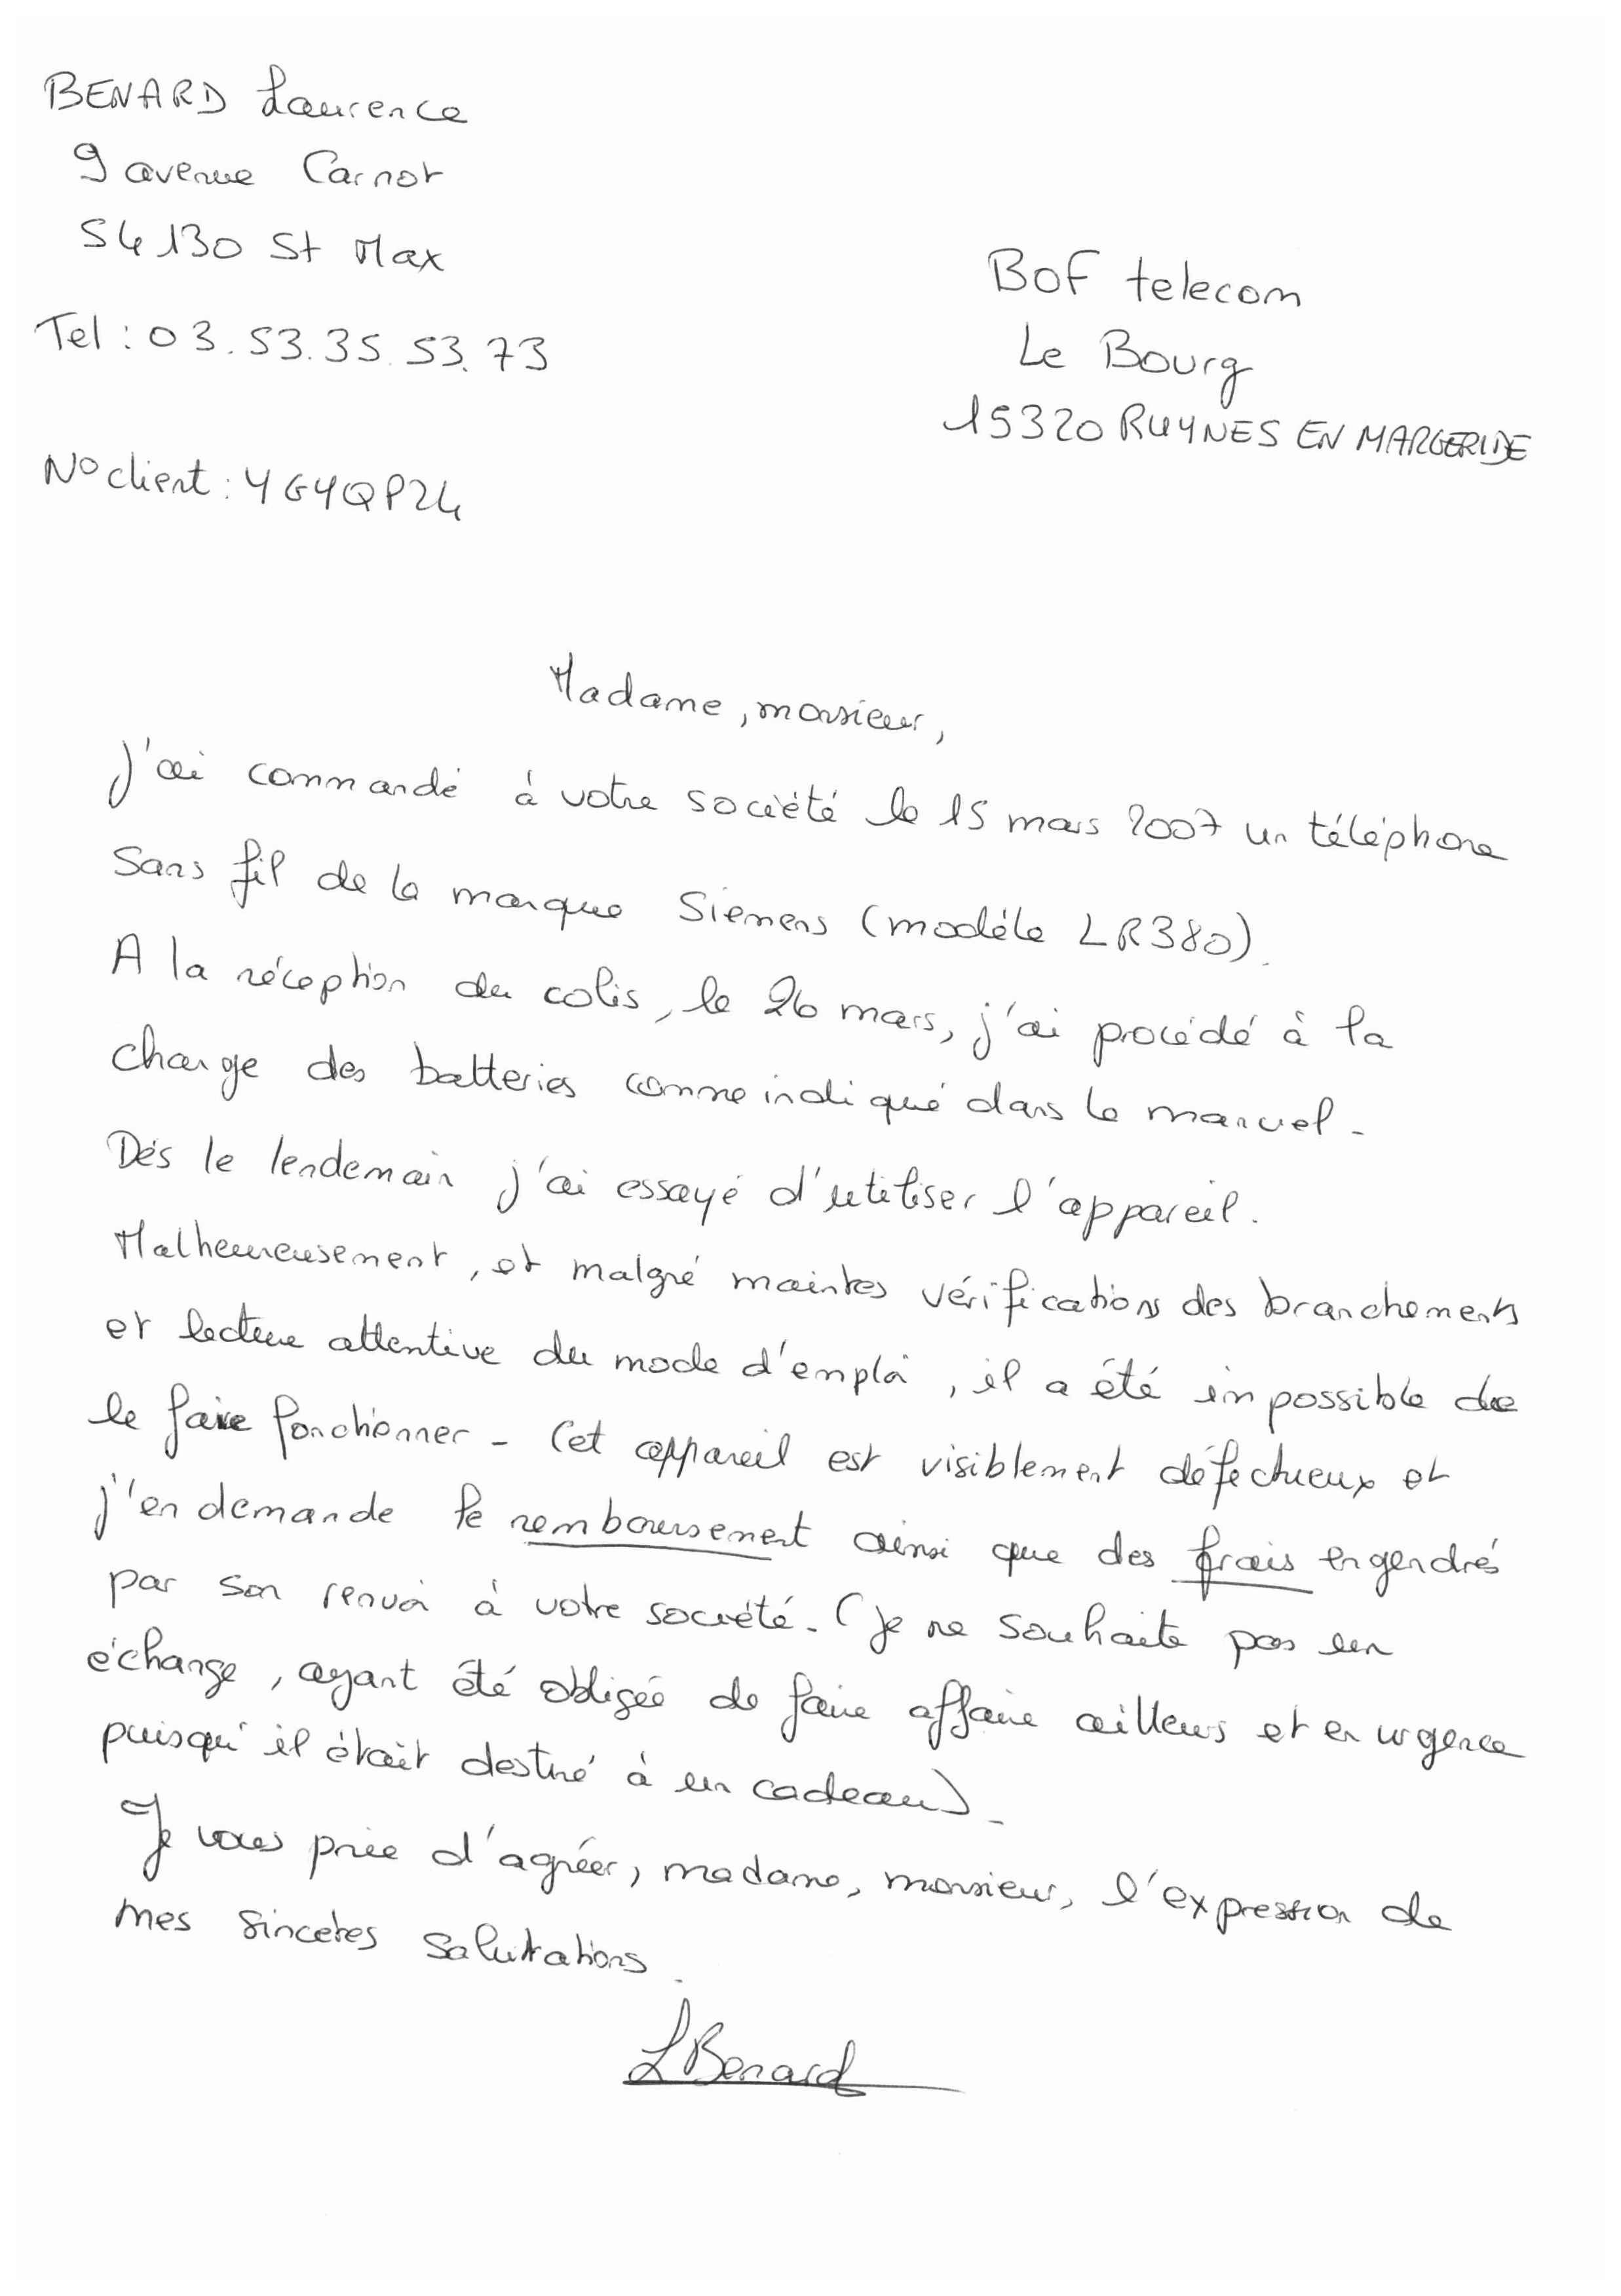 BENARD Laurence
9 avenue Carnot
54130 St Max
Tel : 03.53.35.53.73
BOF telecom
Le Bourg
15320 RUYNES EN MARGERIDE
N° client : YG4QP24
Madame, monsieur,
J'ai commandé à votre société le 15 mars 2007 un téléphone
sans fil de la marque Siemens (modèle LR380).
A la réception du colis, le 26 mars, j'ai procédé à la
charge des batteries comme indiqué dans le manuel.
Dès le lendemain j'ai essayé d'utiliser l'appareil.
Malheureusement, et malgré maintes vérifications des branchements
et lecture attentive du mode d'emploi, il a été impossible de
le faire fonctionner. Cet appareil est visiblement défectueux et
j'en demande le remboursement ainsi que des frais engendrés
par son renvoi à votre société. (Je ne souhaite pas un
échange, ayant été obligée de faire affaire ailleurs et en urgence
puisqu'il était destiné à un cadeau).
Je vous prie d'agréer, madame, monsieur, l'expression de
mes sincères salutations.
LBenard